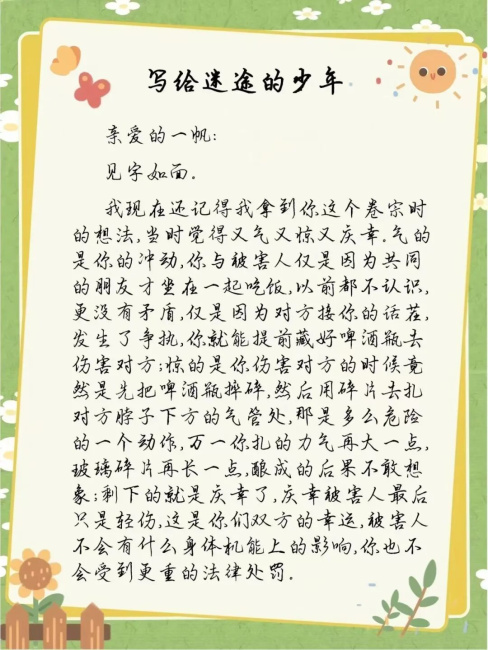 写给迷途的少年
亲爱的一帆:
见字如面.
我现在还记得我拿到你这个卷宗时
的想法,当时觉得又气又惊又庆幸.气的
是你的冲动,你与被害人仅是因为共同
的朋友才坐在一起吃饭,以前都不认识,
更没有矛盾,仅是因为对方接你的话茬,
发生了争执,你就能提前藏好啤酒瓶去
伤害对方;惊的是你伤害对方的时候竟
然是先把啤酒瓶摔碎,然后用碎片去扎
对方脖子下方的气管处,那是多么危险
的一个动作,万一你扎的力气再大一点,
玻璃碎片再长一点,酿成的后果不敢想
象;剩下的就是庆幸了,庆幸被害人最后
只是轻伤,这是你们双方的幸运,被害人
不会有什么身体机能上的影响,你也不
会受到更重的法律处罚.